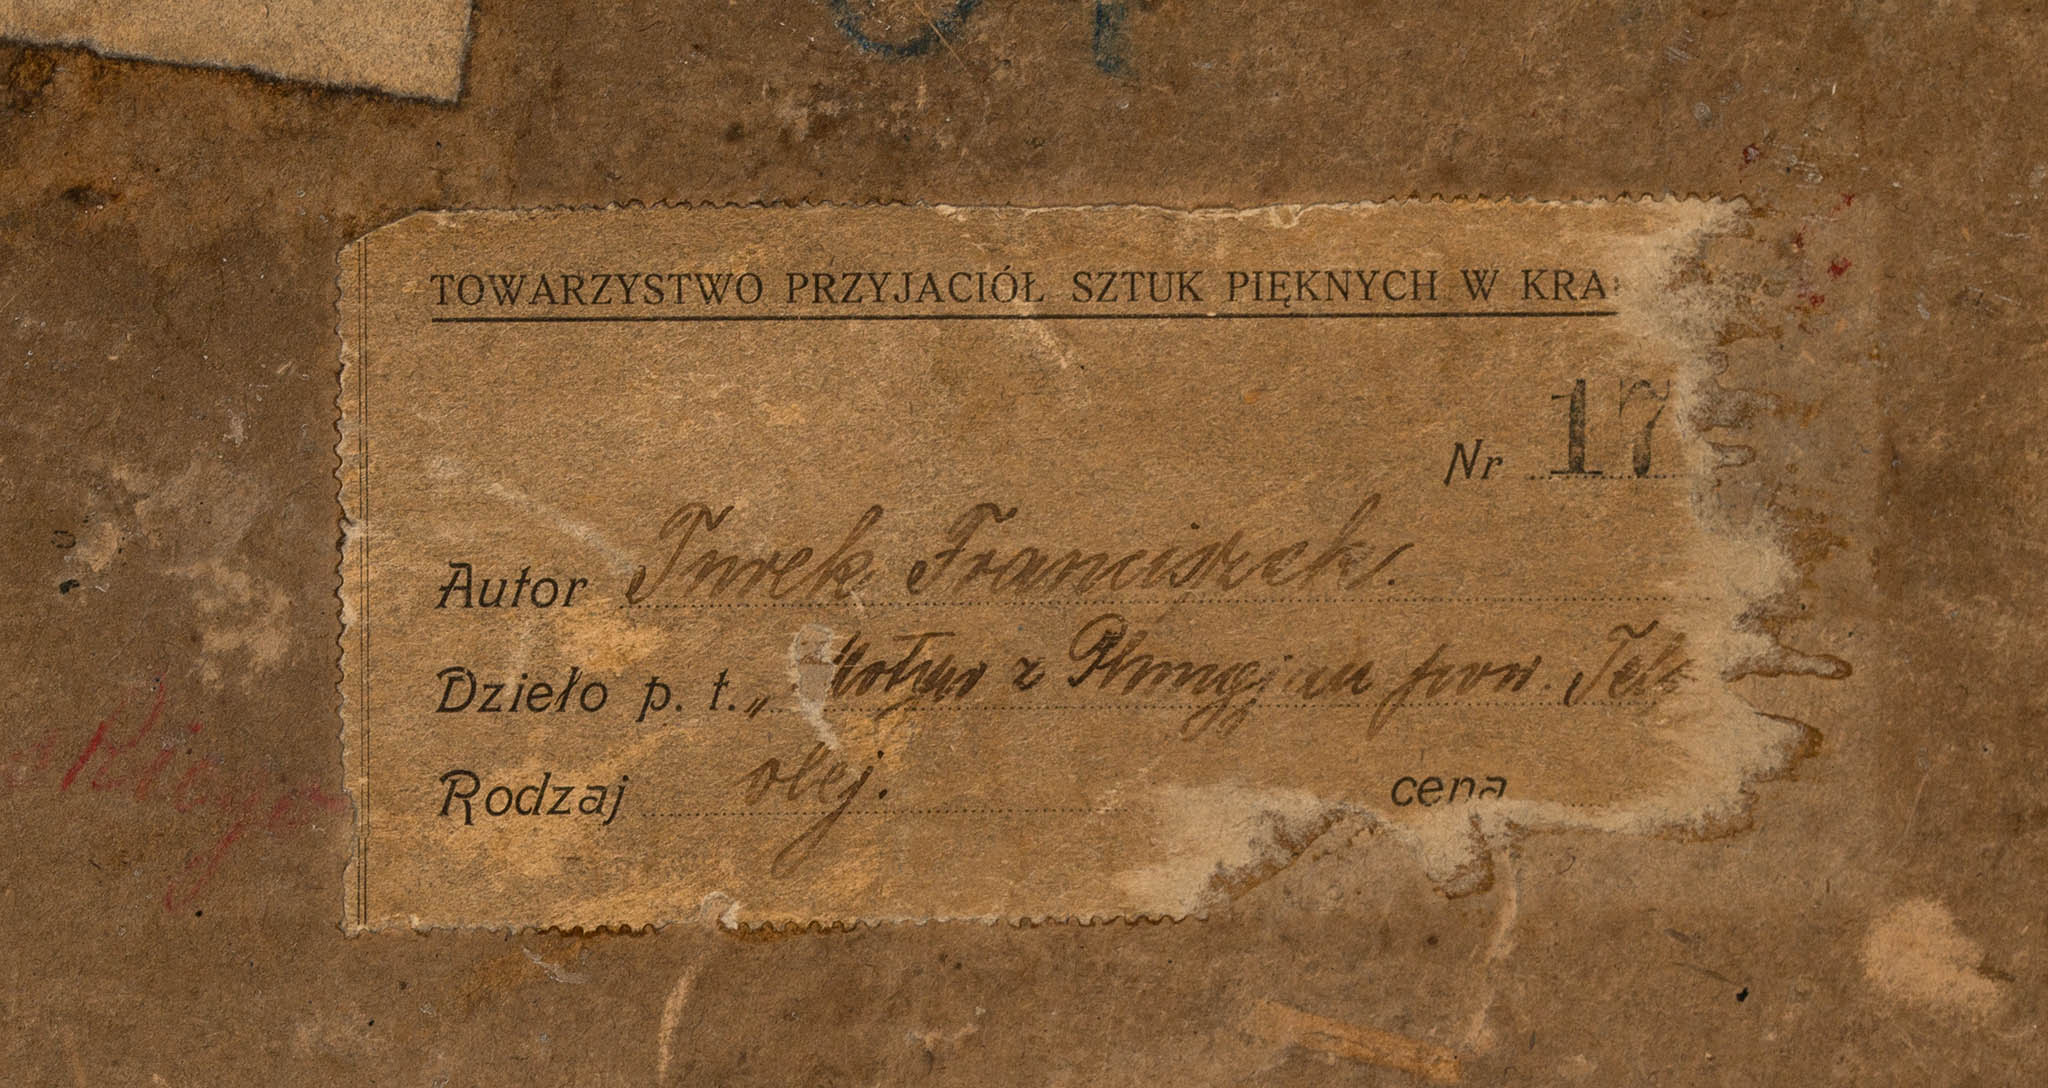 TOWARZYSTWO PRZYJACIÓŁ SZTUK PIĘKNYCH W KRA
Nr 17
Autor Turek Franciszek.
Dzieło p. t. „ z pow.
Rodzaj olej. cena